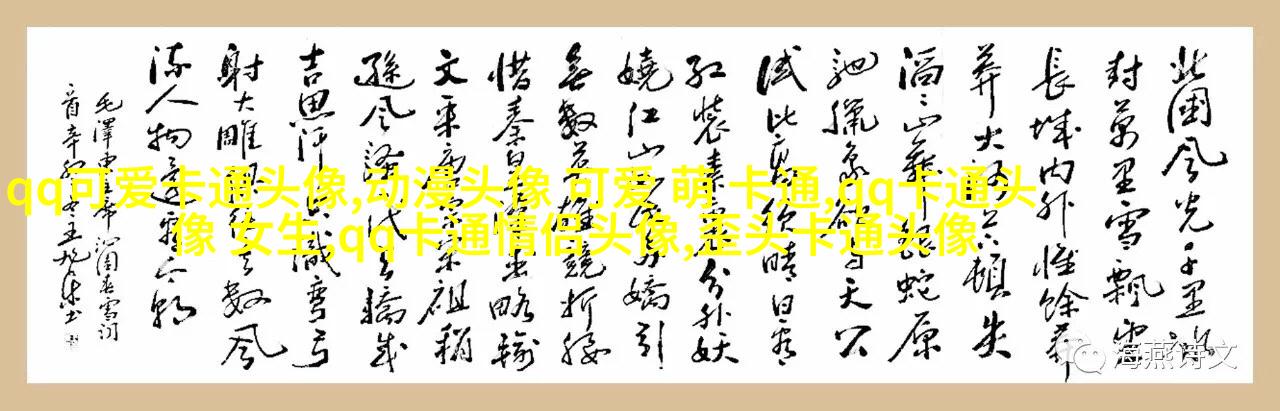 北國风光千里冰
封萬里雪飘望
長城内外惟餘莽
莽大河上下頓失
滔滔山舞银蛇原
馳臘象欲与天公
試比高須晴日看
红裝素裹分外妖
嬈江山如此多嬌引
無數英雄競折腰
惜秦皇漢武略输
文采唐宗宋祖稍
遜风骚一代天驕成
吉思汗只識彎弓
射大雕俱往矣数风
流人物還看今朝
毛澤東主席沁園春雪词
qq可爱卡通头像,动漫头像 可爱 萌 卡通,qq卡通头
像 女生,qq卡通情侣头像,歪头卡通头像
海燕诗文